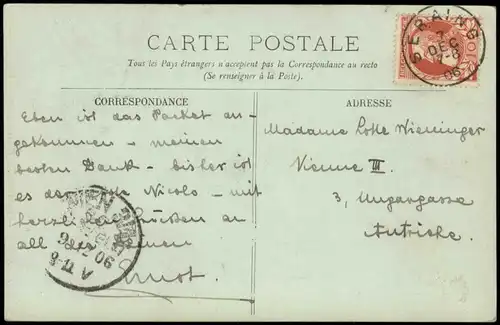 CARTE POSTALE
Tous les Pays étrangers n'acceptent pas la Correspondance au recto
(Se renseigner à la Poste).
SERAING
7
DEC
7-8
06
CORRESPONDANCE
Eben ist das Packet an-
gekommen – meinen
besten Dank – bisher ist
es der Nicolo – mit
herzlichen Grüssen an
all die Deinen
Ernst.
WIEN
06
ADRESSE
Madame Lotte Wieninger
Vienne III.
3, Ungargasse
Autriche